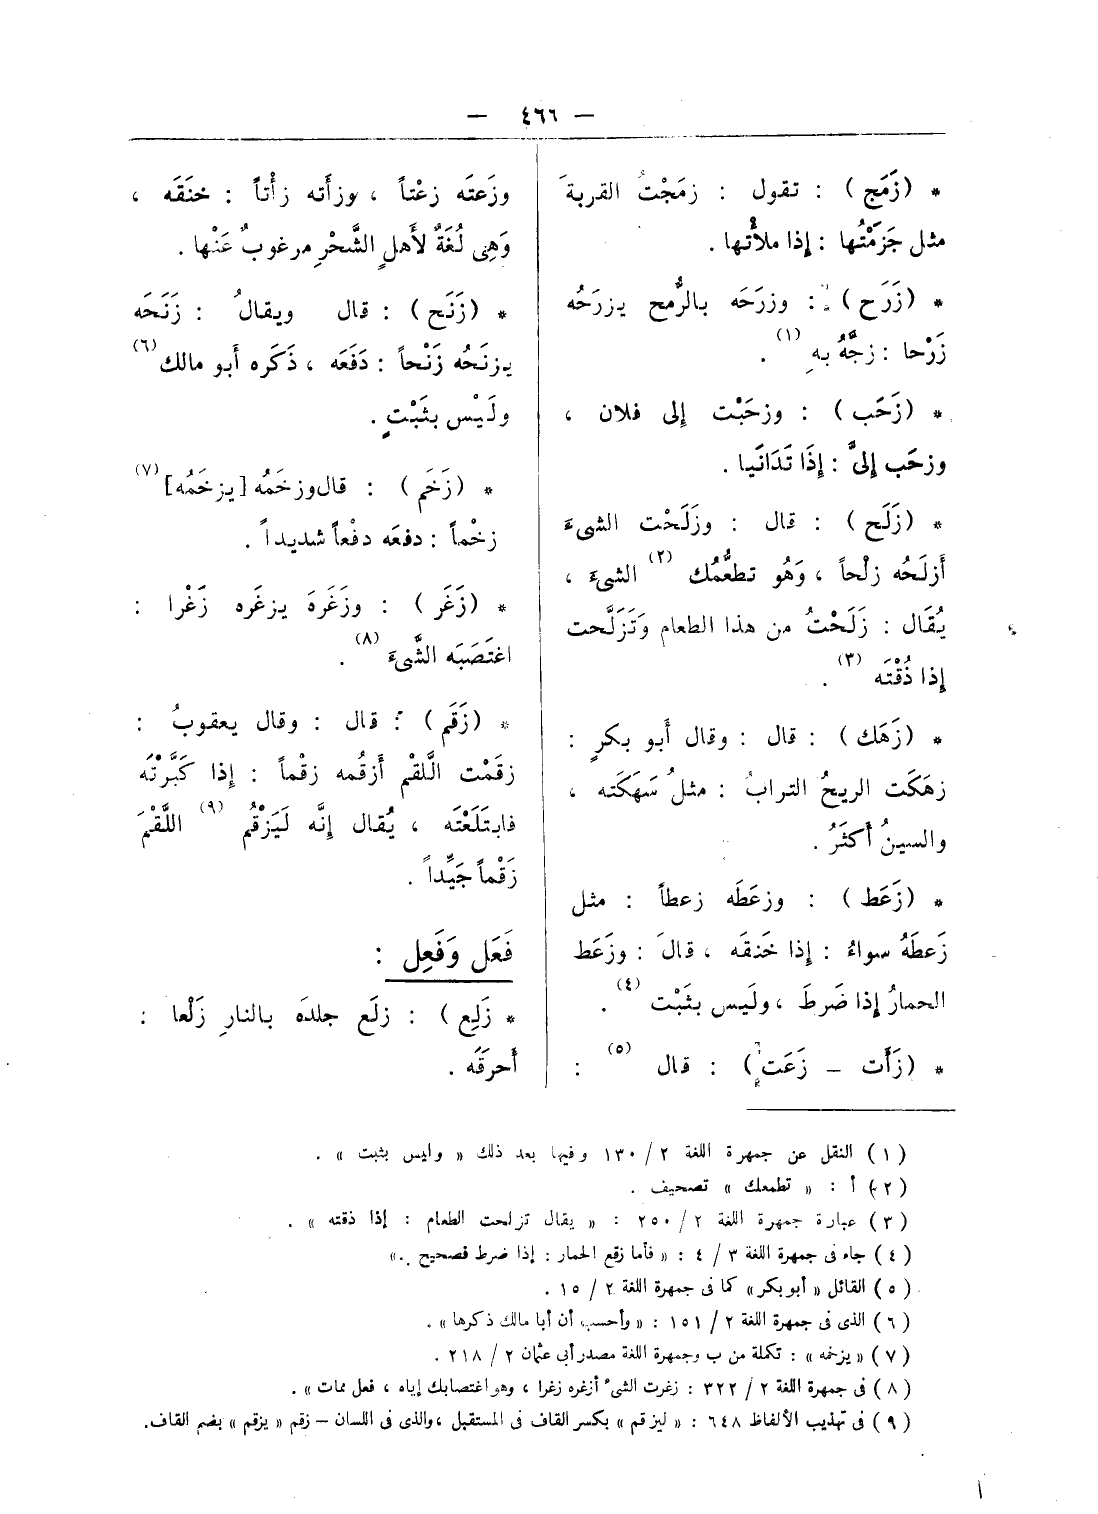 — ٤٦٦ —
* (زَمَج) : تقول : زمَجْتُ القربةَ
مثل جَزَمْتُها : إذا ملأْتها .
* (زَرَح) : وزرَحَه بالرُّمح يزرَحُه
زَرْحا : زجَّهُ به (١) .
* (زَحَب) : وزحَبْت إلى فلان ،
وزحَب إلىَّ : إذَا تَدَانَيا .
* (زَلَح) : قال : وزَلَحْت الشىءَ
أَزلَحُه زلْحاً ، وَهُو تطعُّمُك (٢) الشىءَ ،
يُقَال : زَلَحْتُ من هذا الطعام وَتَزَلَّحت
إذا ذُقْتَه (٣) .
* (زَهَك) : قال : وقال أَبو بكرٍ :
زهَكَت الريحُ الترابُ : مثلُ سَهَكَته ،
والسينُ أَكثَرُ .
* (زَعَط) : وزعَطَه زعطاً : مثل
زَعطَهُ سواءُ : إذا خَنقَه ، قالَ : وزَعَط
الحمارُ إذا ضَرطَ ، ولَيس بثَبْت (٤) .
* (زَأَت – زَعَت) : قال (٥) :
وزَعتَه زعْتاً ، وزأَته زأْتاً : خنَقَه ،
وَهِى لُغَةٌ لأَهلِ الشَّحْرِ مرغوبٌ عَنْها .
* (زَنَح) : قال ويقالُ : زَنَحَه
يزنَحُه زَنْحاً : دَفَعَه ، ذَكَره أَبو مالك (٦)
ولَيْس بثَبْتٍ .
* (زَخَم) : قال وزخَمُه [يزخَمُه] (٧)
زخْماً : دفعَه دفْعاً شديداً .
* (زَغَر) : وزَغَرهَ يزغَره زَغْرا :
اغتَصَبَه الشَّىءَ (٨) .
* (زَقَم) : قال : وقال يعقوبُ :
زقَمْت الَّلقْم أَزقُمه زقْماً : إذا كَبَّرْتَه
فابتَلَعْتَه ، يُقال إنَّه لَيَزْقُم (٩) اللَّقْمَ
زَقْماً جَيِّداً .
فَعَل وَفَعِل :
* زَلِع) : زلَع جلدَه بالنارِ زَلْعا :
أَحرقَه .
(١) النقل عن جمهرة اللغة ٢ / ١٣٠ وفيها بعد ذلك « وليس بثبت » .
(٢) أ : « تطمعك » تصحيف .
(٣) عبارة جمهرة اللغة ٢ / ٢٥٠ : « يقال تزلحت الطعام : إذا ذقته » .
(٤) جاء فى جمهرة اللغة ٣ / ٤ : « فأما زقع الحمار : إذا ضرط فصحيح .»
(٥) القائل « أبو بكر » كما فى جمهرة اللغة ٢ / ١٥ .
(٦) الذى فى جمهرة اللغة ٢ / ١٥١ : « وأحسب أن أبا مالك ذكرها » .
(٧) « يزخمه » : تكملة من ب وجمهرة اللغة مصدر أبى عثمان ٢ / ٢١٨ .
(٨) فى جمهرة اللغة ٢ / ٣٢٢ : زغرت الشىء أزغره زغرا ، وهو اغتصابك إياه ، فعل ممات » .
(٩) فى تهذيب الألفاظ ٦٤٨ : « ليزقم » بكسر القاف فى المستقبل ، والذى فى اللسان – زقم « يزقم » بضم القاف.